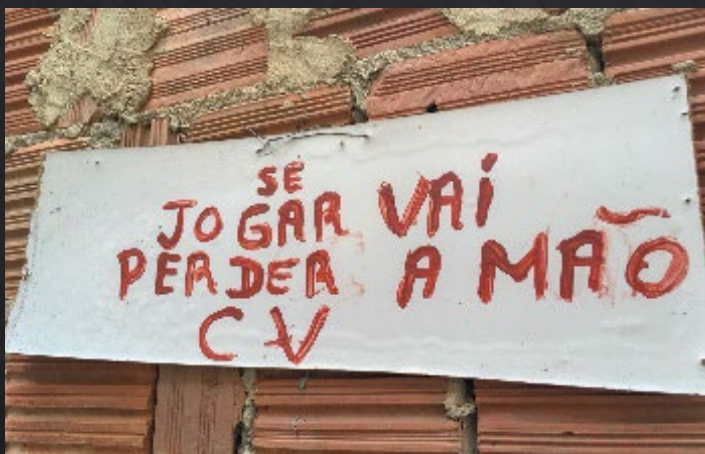 SE
JOGAR VAI
PERDER A MÃO
CV